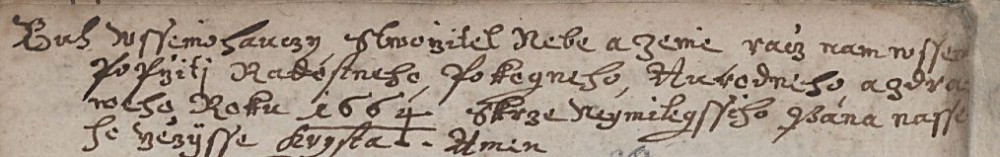 Buh wssemohauczy Stworzitel Nebe a zeme racz nam wssem
Popržiti Radostneho, Pokogneho, Aurodneho a zdra
weho Roku 1664 Skrze Neymilegssiho Pána nasse
ho Krysta. Amen